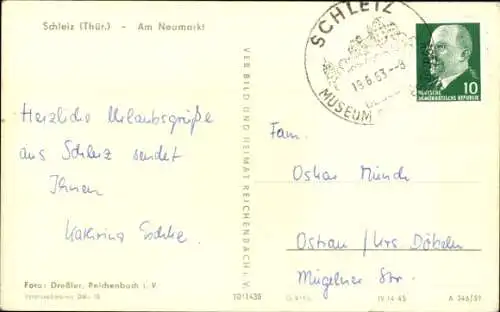 Schleiz (Thür.) - Am Neumarkt
SCHLEIZ
19.6.63.--8
MUSEUM
10
DEUTSCHE
DEMOKRATISCHE REPUBLIK
Herzliche Urlaubsgrüße
aus Schleiz sendet
Ihnen
Kathrina
VEB BILD UND HEIMAT REICHENBACH I. V.
Fam.
Oskar Münch
Ostrau / Krs Döbeln
Mügelner Str.
Foto: Dreßler, Reichenbach i. V.
10/1435
IV-14-45
A 346/59